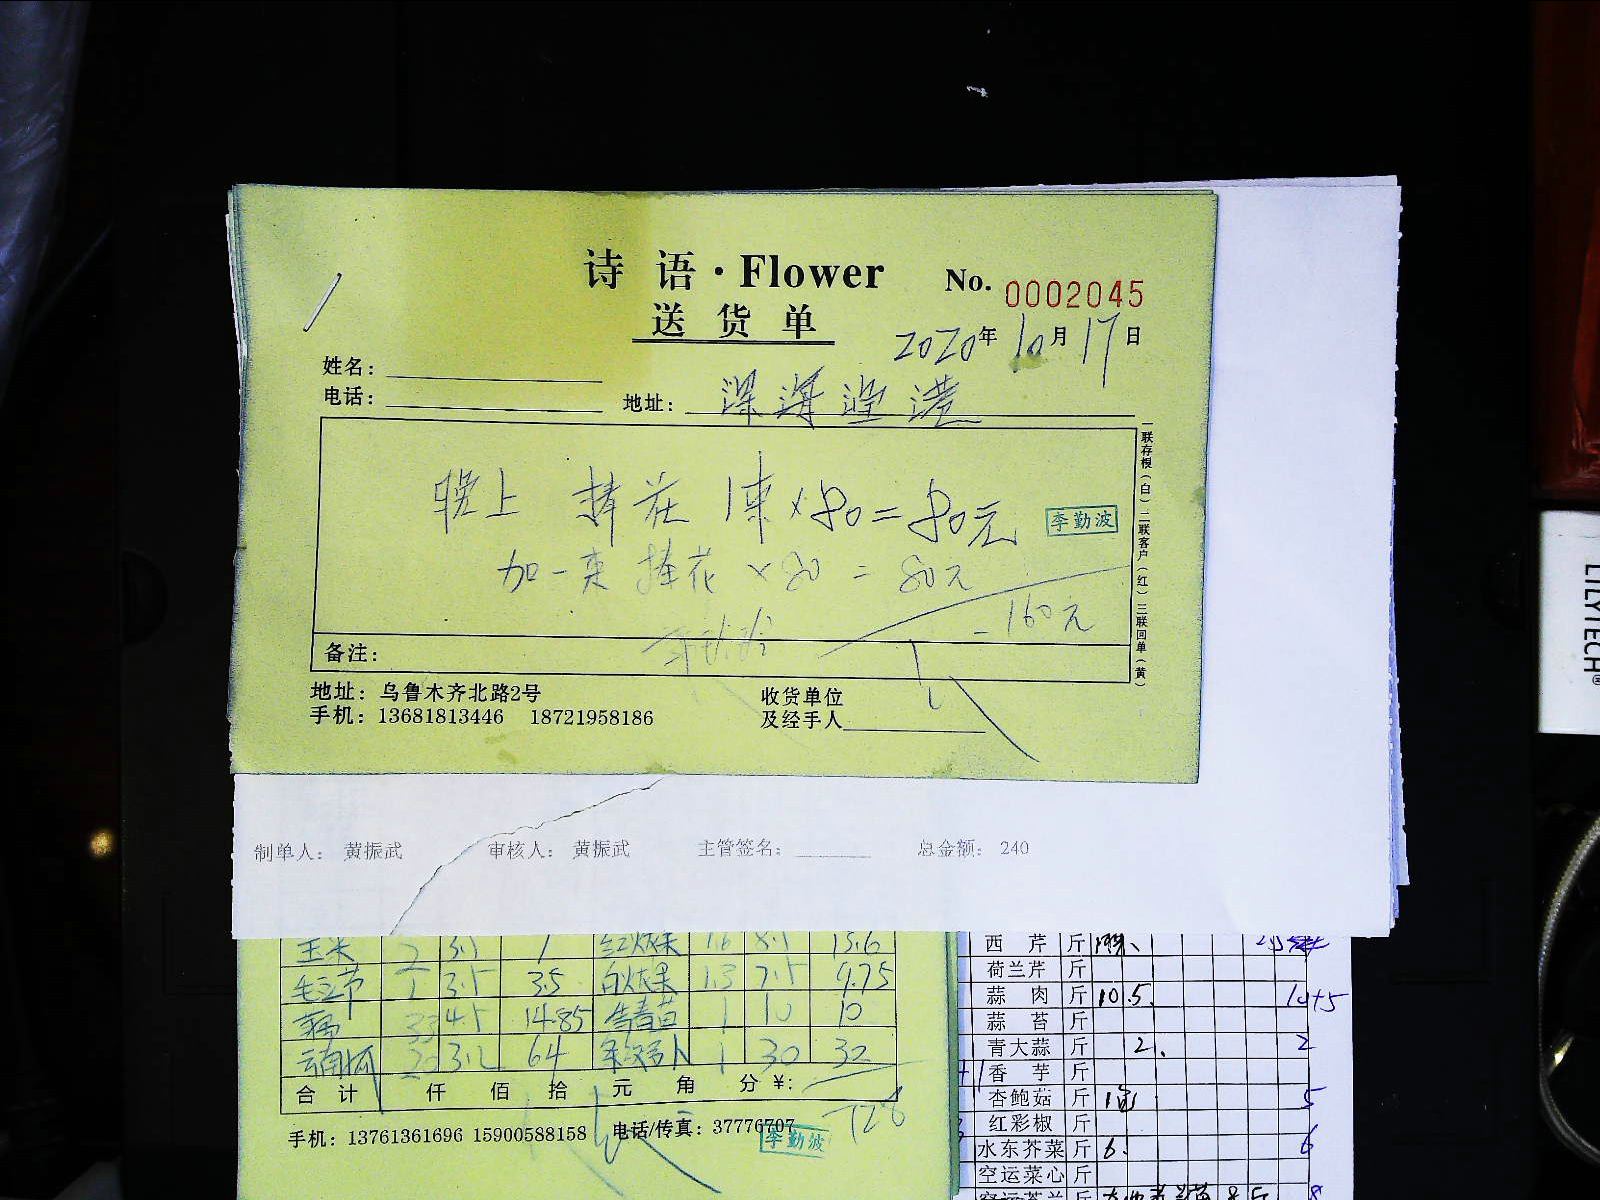 诗语·Flower
No. 0002045
送货单
2020年10月17日
姓名：
电话：
地址：深海渔港
晚上 捧花 1束×80=80元
李勤波
加一束 捧花 ×80=80元
160元
备注：
一联存根（白）二联客户（红）三联回单（黄）
地址：乌鲁木齐北路2号
收货单位
手机：13681813446 18721958186
及经手人
制单人： 黄振武 审核人： 黄振武 主管签名： 总金额： 240
玉米 2 3.5 7 红火龙果 1.6 8.5 13.6
毛豆节 1 3.5 3.5 白火龙果 1.3 7.5 9.75
3.3 4.5 14.85 1 10 10
云南 20 3.2 64 1 30 30
合计 仟 佰 拾 元 角 分 ¥：
728
手机：13761361696 15900588158 电话/传真：37776707
李勤波
西芹 斤
荷兰芹 斤
蒜肉 斤 10.5. 10+5
蒜苔 斤
青大蒜 斤 2. 2
香芋 斤
杏鲍菇 斤 5
红彩椒 斤
水东芥菜 斤 6. 6
空运菜心 斤
空运芥兰 斤
LILYTECH®